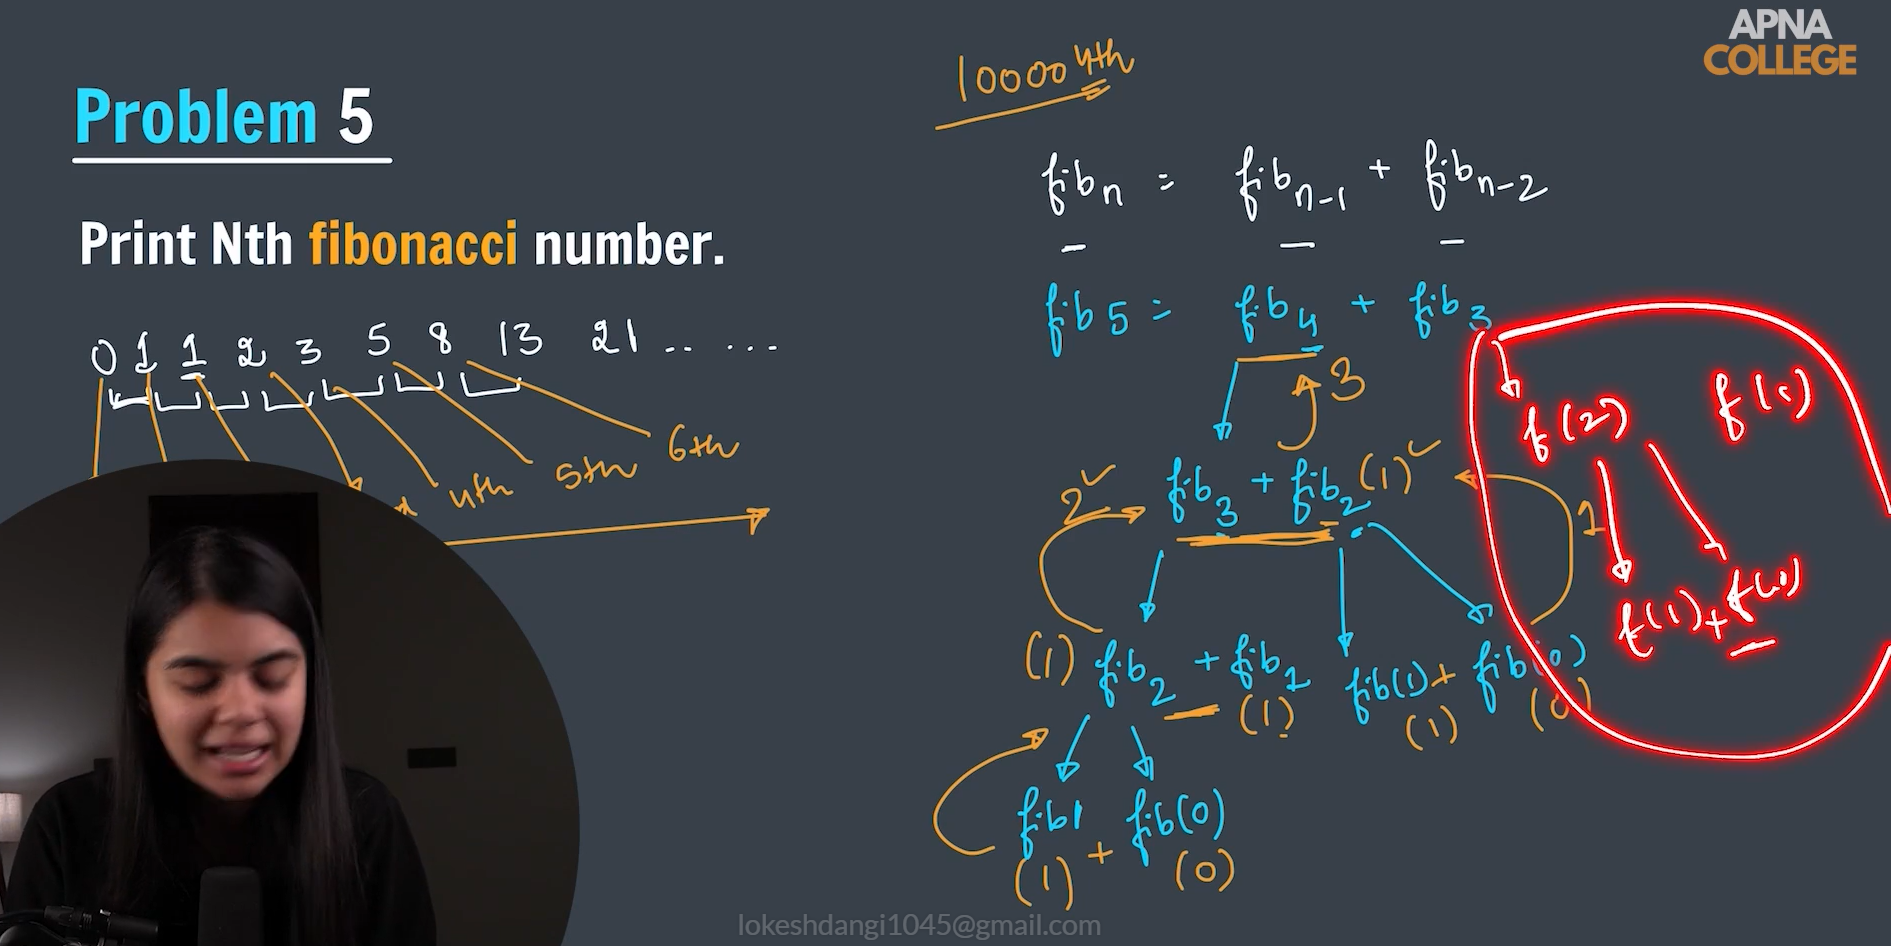 APNA
COLLEGE
Problem 5
Print Nth fibonacci number.
0 1 1 2 3 5 8 13 21 .. ...
4th 5th 6th
10000 4th
fib n = fib n-1 + fib n-2
fib 5 = fib 4 + fib 3
3
f(2) f(1)
2 fib 3 + fib 2 (1)
1
f(1) + f(0)
(1) fib 2 + fib 1 fib(1) + fib(0)
(1) (1) (0)
fib1 + fib(0)
(1) (0)
lokeshdangi1045@gmail.com